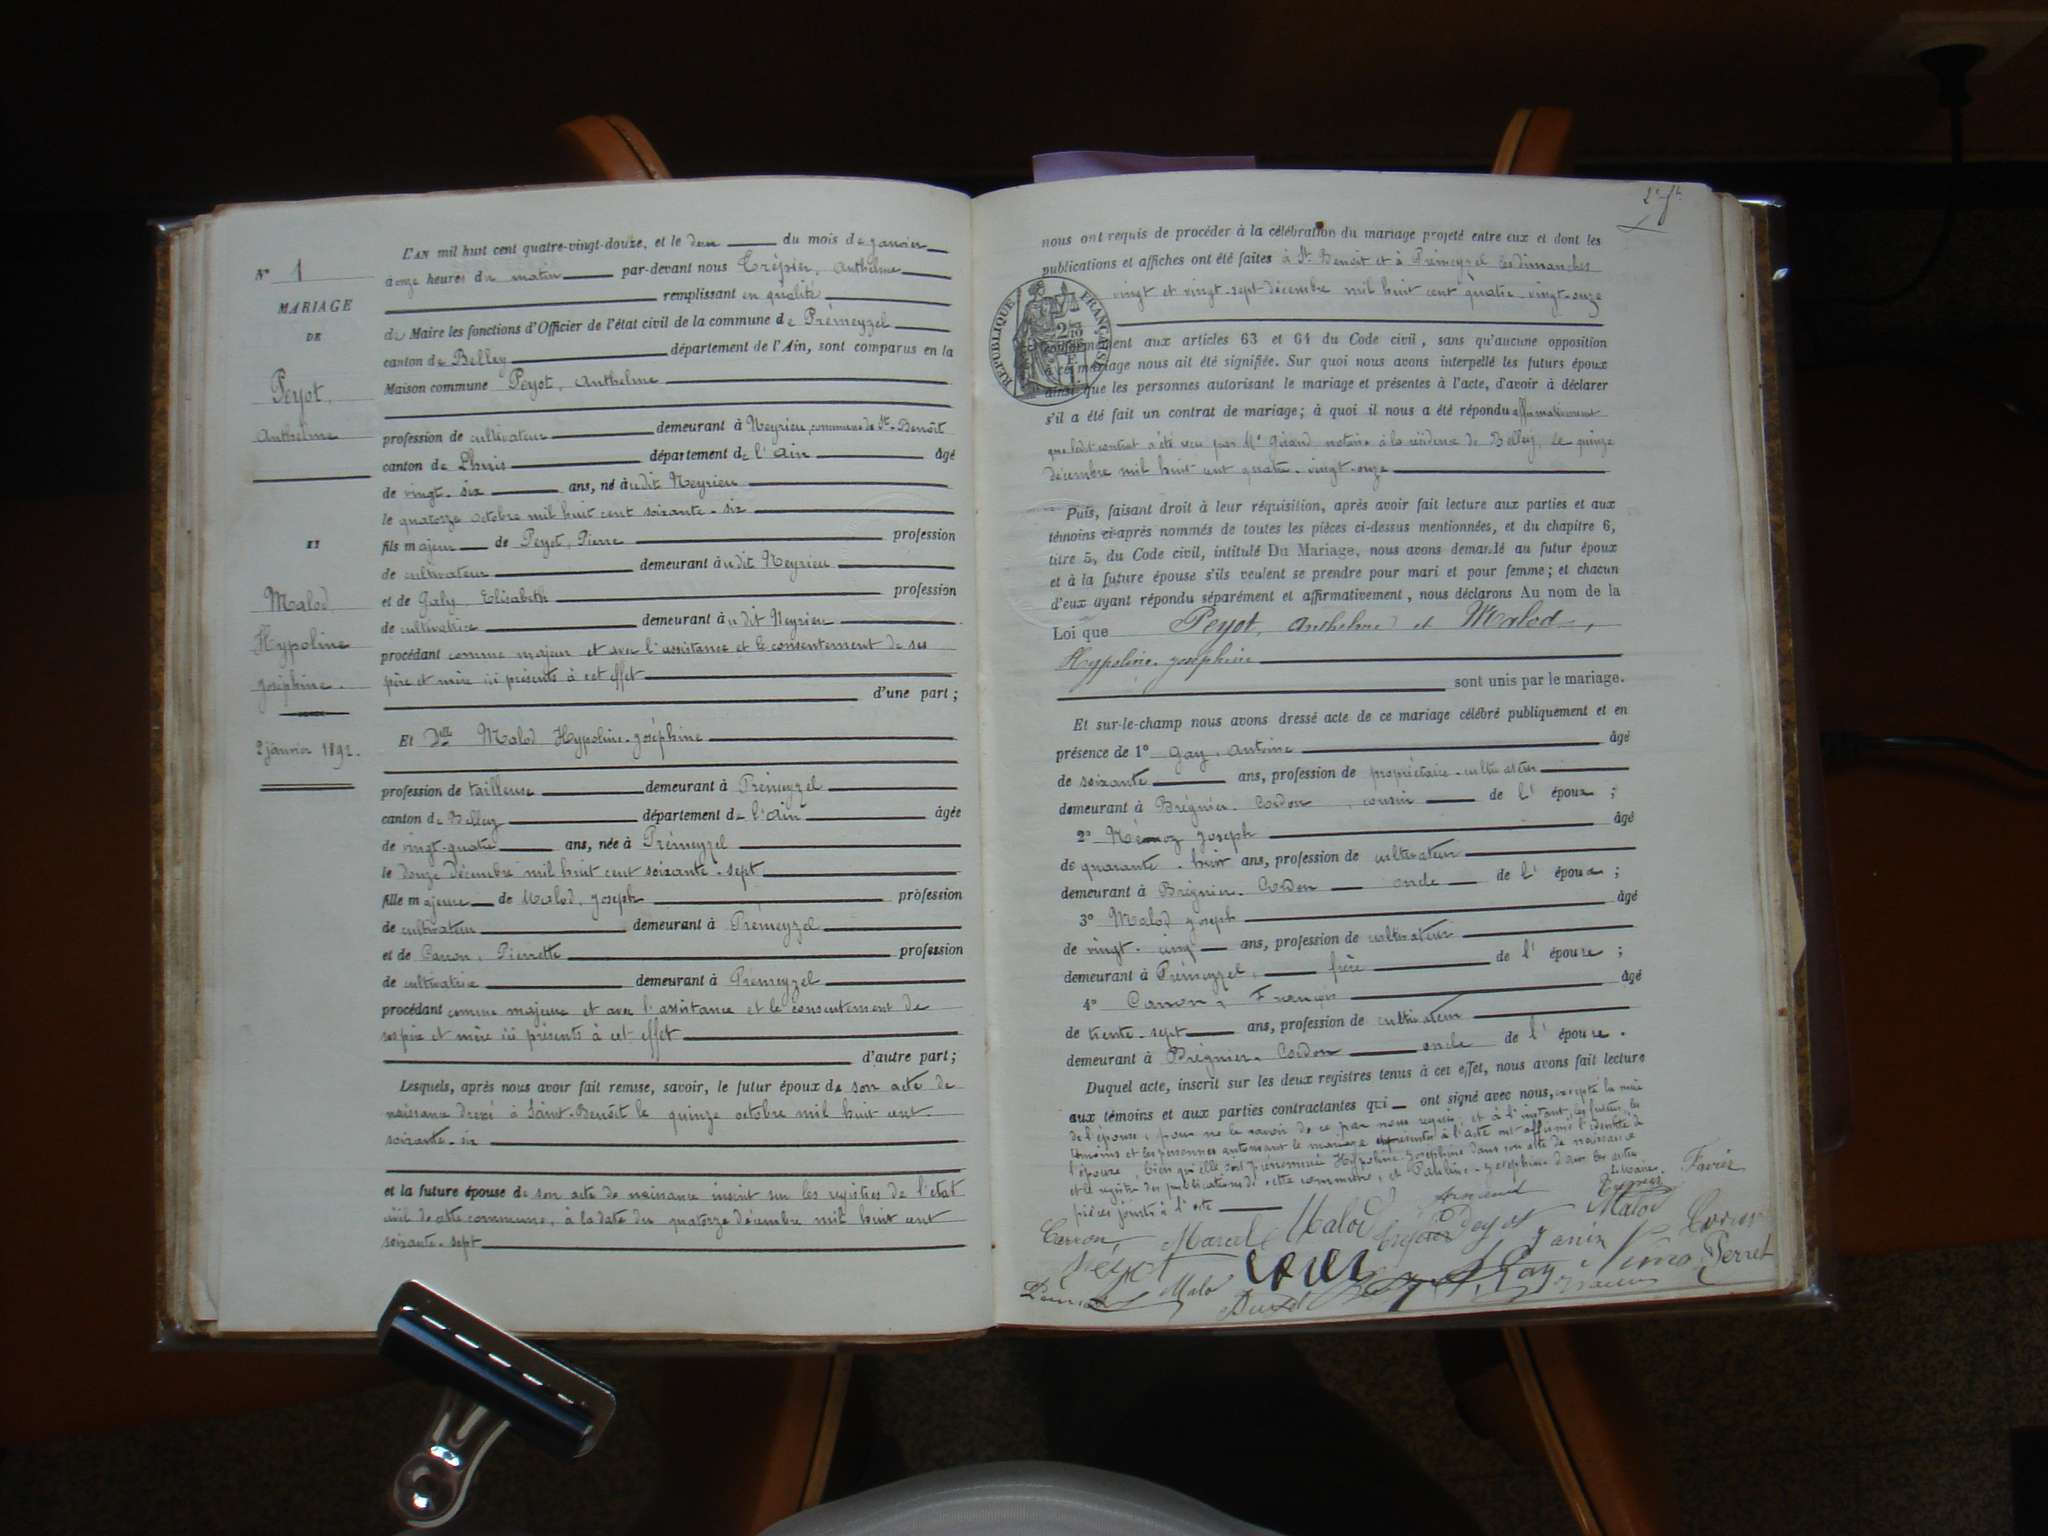 N° 1
MARIAGE
DE
Peyot,
Anthelme
ET
Malod
Hypoline
Joséphine.
2 janvier 1892.
L'AN mil huit cent quatre-vingt-douze, et le deux du mois de janvier
à onze heures du matin par-devant nous Trépier, Anthelme
remplissant en qualité
de Maire les fonctions d'Officier de l'état civil de la commune de Prémeyzel
canton de Belley département de l'Ain, sont comparus en la
Maison commune Peyot, Anthelme
profession de cultivateur demeurant à Neyrieu, commune de St-Benoît
canton de Lhuis département de l'Ain âgé
de vingt-six ans, né à udit Neyrieu
le quatorze octobre mil huit cent soixante-six
fils majeur de Peyot, Pierre profession
de cultivateur demeurant à udit Neyrieu
et de Galy, Elisabeth profession
de cultivatrice demeurant à udit Neyrieu
procédant comme majeur et avec l'assistance et le consentement de ses
père et mère ici présents à cet effet
d'une part;
Et Dlle Malod Hypoline-Joséphine
profession de tailleuse demeurant à Prémeyzel
canton de Belley département de l'Ain âgée
de vingt-quatre ans, née à Prémeyzel
le douze décembre mil huit cent soixante-sept
fille majeure de Malod, Joseph profession
de cultivateur demeurant à Prémeyzel
et de Carron, Pierrette profession
de cultivatrice demeurant à Prémeyzel
procédant comme majeure et avec l'assistance et le consentement de
ses père et mère ici présents à cet effet
d'autre part;
Lesquels, après nous avoir fait remise, savoir, le futur époux de son acte de
naissance dressé à Saint-Benoît le quinze octobre mil huit cent
soixante-six
et la future épouse de son acte de naissance inscrit sur les registres de l'état
civil de cette commune, à la date du quatorze décembre mil huit cent
soixante-sept
nous ont requis de procéder à la célébration du mariage projeté entre eux et dont les
publications et affiches ont été faites à St-Benoît et à Prémeyzel les dimanches
vingt et vingt-sept décembre mil huit cent quatre-vingt-onze
RÉPUBLIQUE FRANÇAISE
conformément aux articles 63 et 64 du Code civil, sans qu'aucune opposition
à ce mariage nous ait été signifiée. Sur quoi nous avons interpellé les futurs époux
ainsi que les personnes autorisant le mariage et présentes à l'acte, d'avoir à déclarer
s'il a été fait un contrat de mariage; à quoi il nous a été répondu affirmativement
que ledit contrat a été reçu par Me Girand notaire à la résidence de Belley, le quinze
décembre mil huit cent quatre-vingt-onze
Puis, faisant droit à leur réquisition, après avoir fait lecture aux parties et aux
témoins ci-après nommés de toutes les pièces ci-dessus mentionnées, et du chapitre 6,
titre 5, du Code civil, intitulé Du Mariage, nous avons demandé au futur époux
et à la future épouse s'ils veulent se prendre pour mari et pour femme; et chacun
d'eux ayant répondu séparément et affirmativement, nous déclarons Au nom de la
Loi que Peyot, Anthelme et Malod,
Hypoline-Joséphine
sont unis par le mariage.
Et sur-le-champ nous avons dressé acte de ce mariage célébré publiquement et en
présence de 1° Gay, Antoine âgé
de soixante ans, profession de propriétaire-cultivateur
demeurant à Brégnier-Cordon, cousin de l'époux;
2° Némoz Joseph âgé
de quarante-huit ans, profession de cultivateur
demeurant à Brégnier-Cordon oncle de l'époux;
3° Malod Joseph âgé
de vingt-cinq ans, profession de cultivateur
demeurant à Prémeyzel, frère de l'épouse;
4° Carron, François âgé
de trente-sept ans, profession de cultivateur
demeurant à Brégnier-Cordon oncle de l'épouse.
Duquel acte, inscrit sur les deux registres tenus à cet effet, nous avons fait lecture
aux témoins et aux parties contractantes qui ont signé avec nous, excepté la mère
de l'épouse, pour ne le savoir de ce par nous requis, et à l'instant, les futurs, les
témoins et les personnes autorisant le mariage et présentes à l'acte ont affirmé l'identité de
l'épouse, bien qu'elle soit prénommée Hypoline-Joséphine dans son acte de naissance
et le registre des publications de cette commune, et Pauline-Joséphine dans les autres
pièces jointes à l'acte
Le Maire
Trépier
Favier
Arnaud
Malod
Carron
Marcel
Malod
Trépier
Peyot
Janin
Peyot
Malod
Gay
Némoz
Perret